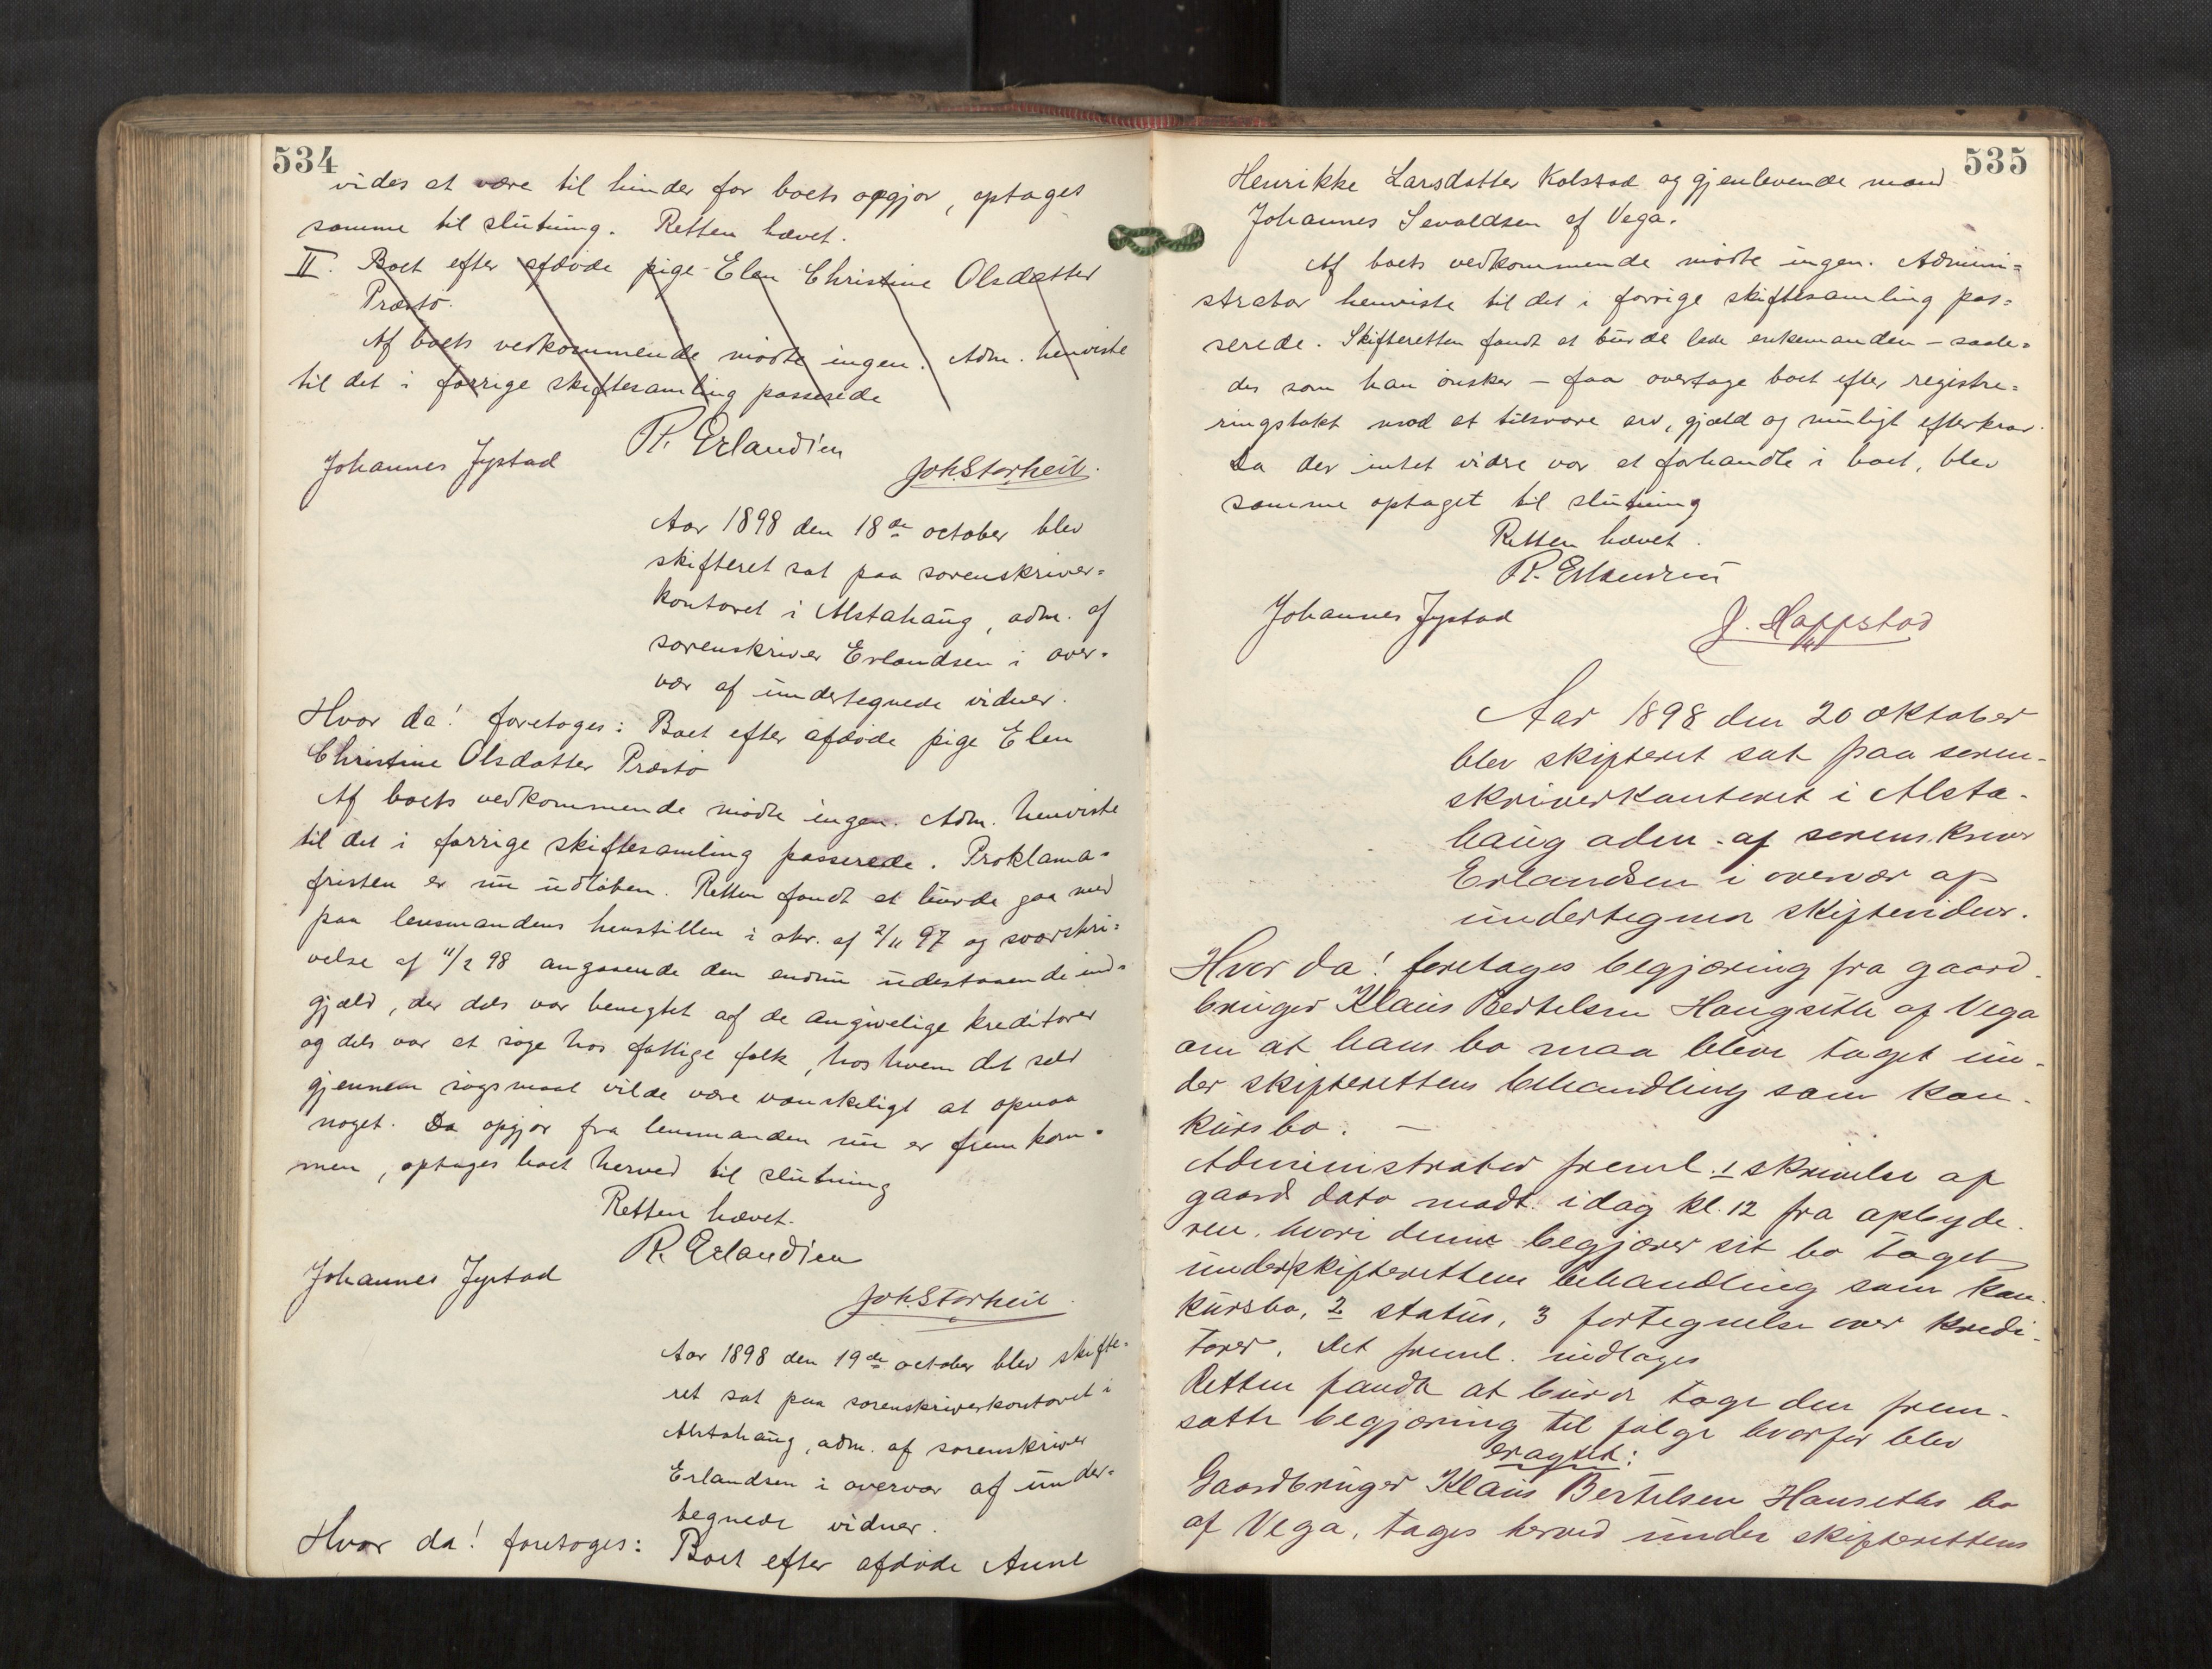 534
vides at være til hinder for boets opgjør, optages
samme til slutning. Retten hævet.
II. Boet efter afdøde pige Elen Christine Olsdatter
Præstø.
Af boets vedkommende mødte ingen. Adm. henviste
til det i forrige skiftesamling passerede
R. Erlandsen
Johannes Jystad
Joh. Storheil.
Aar 1898 den 18de october blev
skifteret sat paa sorenskriver=
kontoret i Alstahaug, adm. af
sorenskriver Erlandsen i over=
vær af undertegnede vidner.
Hvor da! foretages: Boet efter afdøde pige Elen
Christine Olsdatter Præstø
Af boets vedkommende mødte ingen. Adm. henviste
til det i forrige skiftesamling passerede. Proklama=
fristen er nu udløben. Retten fandt at burde gaa med
paa lensmandens henstillen i skr. af 2/11 97 og svarskri=
velse af 11/2 98 angaaende den endnu udestaaende ind=
gjæld, der dels var benegtet af de angivelige kreditorer
og dels var at søge hos fattige folk, hos hvem det selv
gjennem søgsmaal vilde være vanskeligt at opnaa
noget. Da opgjør fra lensmanden nu er fremkom=
men, optages boet herved til slutning
Retten hævet.
R. Erlandsen
Johannes Jystad
Joh. Storheil
Aar 1898 den 19de october blev skifte=
ret sat paa sorenskriverkontoret i
Alstahaug, adm. af sorenskriver
Erlandsen i overvær af under=
tegnede vidner.
Hvor da! foretages: Boet efter afdøde Anne
535
Henrikke Larsdatter Kolstad og gjenlevende mand
Johannes Sevaldsen af Vega.
Af boets vedkommende mødte ingen. Admini=
strator henviste til det i forrige skiftesamling pas=
serede. Skifteretten fandt at burde lade enkemanden – saale=
des som han ønsker – faa overtage boet efter registre=
ringstakt mod at tilsvare arv, gjæld og muligt efterkrav.
Da der intet vidre var at forhandle i boet, blev
samme optaget til slutning
Retten hævet.
R. Erlandsen
Johannes Jystad
J. Hoppstad
Aar 1898 den 20 oktober
blev skifteret sat paa soren-
skriverkontoret i Alsta-
haug adm. af sorenskriver
Erlandsen i overvær af
undertegnede skiftevidner.
Hvor da! foretages begjæring fra gaard-
bruger Klaus Bertelsen Haugseth af Vega
om at hans bo maa blive taget un-
der skifterettens behandling som kon-
kursbo. –
Administrator freml. 1 skrivelse af
gaards dato modt. idag kl. 12 fra opbyde-
ren, hvori denne begjærer sit bo taget
under skifterettens behandling som kon-
kursbo, 2 status, 3 fortegnelse over kredi-
torer. Det freml. indtages
Retten fandt at burde tage den frem-
satte begjæring til følge hvorfor blev
eragtet:
Gaardbruger Klaus Bertelsen Hanseths bo
af Vega, tages herved under skifterettens